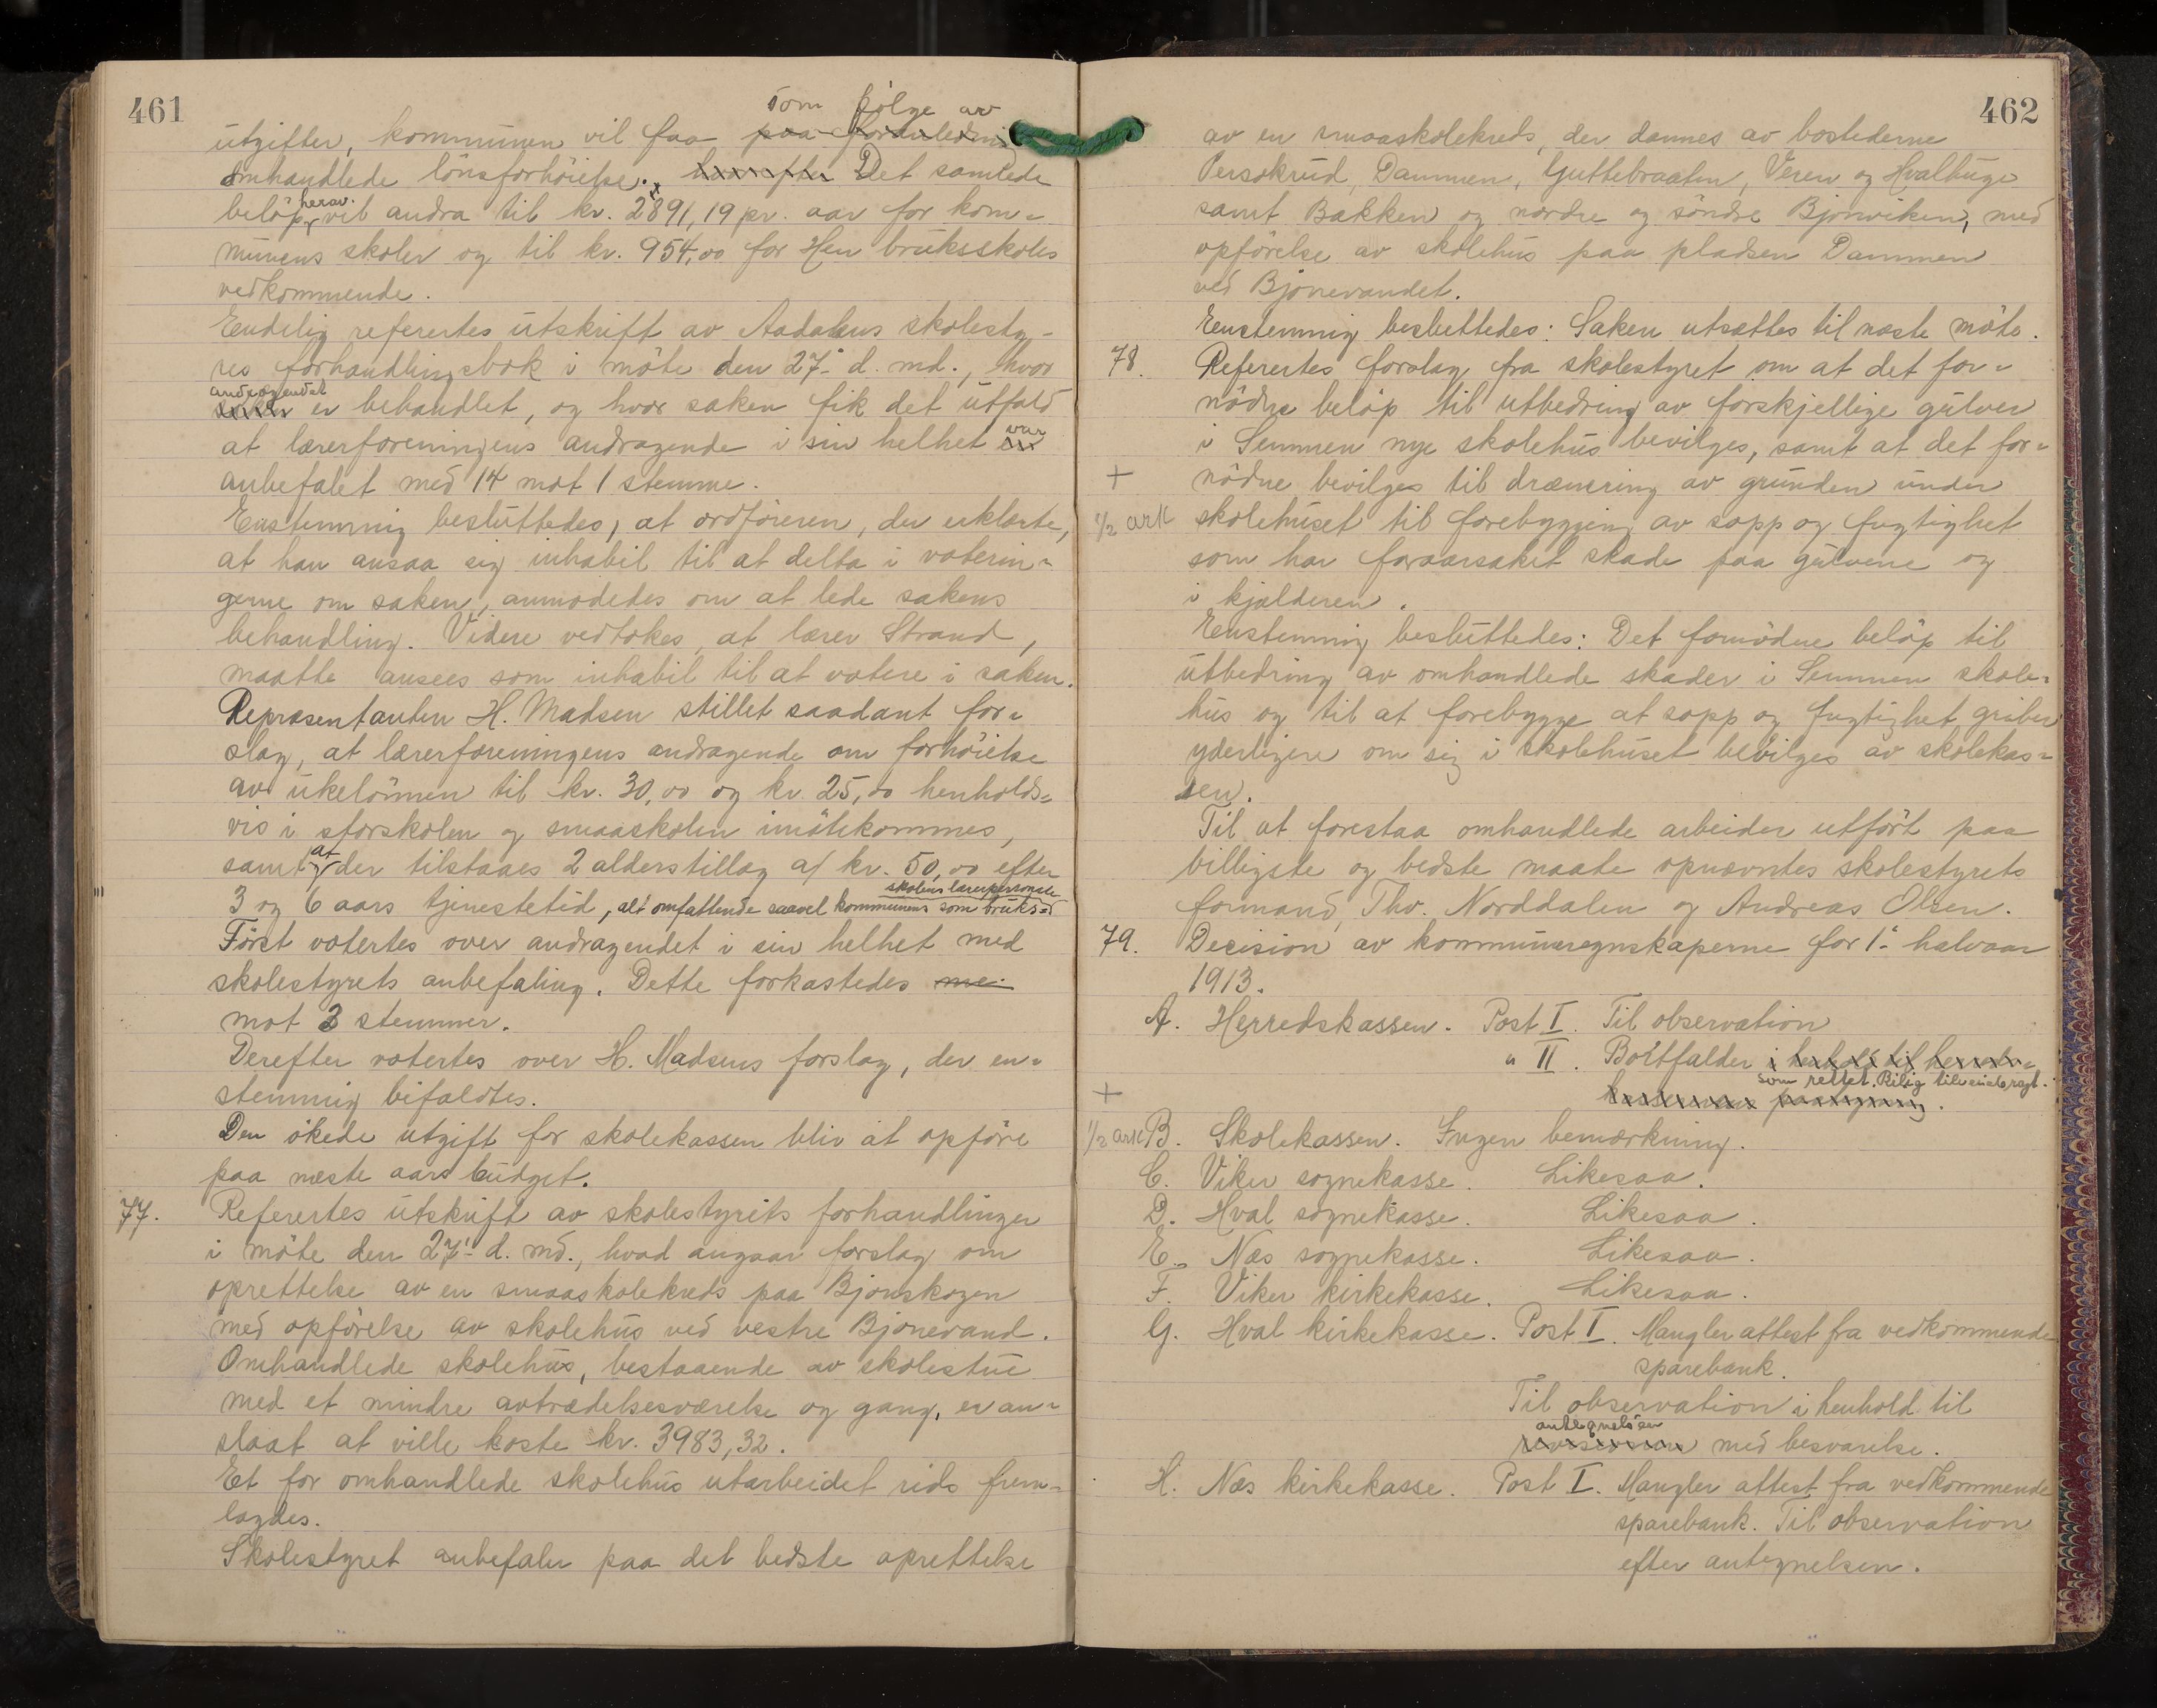 461
som følge av
utgifter, kommunen vil faa paa foranledning
omhandlede lönsforhöielse. herefter Det samlede
belöp herav vil andra til kr. 2891,19 pr. aar for kom-
munens skoler og til kr. 954,00 for Hen bruksskoles
vedkommende.
Endelig refertes utskrift av Aadalens skolesty-
res forhandlingsbok i möte den 27de d. md., hvor
andragendet
saken er behandlet, og hvor saken fik det utfald
at lærerforeningens andragende i sin helhet var
anbefalet med 14 mot 1 stemme.
Enstemmig besluttedes, at ordföreren, der erklærte,
at han ansaa sig inhabil til at delta i voterin-
gerne om saken, anmodedes om at lede sakens
behandling. Videre vedtokes, at lærer Strand,
maatte ansees som inhabil til at votere i saken.
Repræsentanten H. Madsen stillet saadant for-
slag, at lærerforeningens andragende om forhöielse
av ukelönnen til kr. 30,00 og kr. 25,00 henholds-
vis i storskolen og smaaskolen imötekommes,
samt at der tilstaaes 2 alderstillæg a/ kr. 50,00 efter
skolens lærerpersonale
3 og 6 aars tjenestetid, alt omfattende saavel kommunens som bruks-
Först votertes over andragendet i sin helhet med
skolestyrets anbefaling. Dette forkastedes me
mot 3 stemmer.
Derefter votertes over H. Madsens forslag, der en-
stemmig bifaldtes.
Den ökede utgift for skolekassen bliv at opföre
paa næste aars budget.
77. Referertes utskrift av skolestyrets forhandlinger
i möte den 27de d. md., hvad angaar forslag om
oprettelse av en smaaskolekreds paa Bjoneskogen
med opförelse av skolehus ved vestre Bjonevand.
Omhandlede skolehus, bestaaende av skolestue
med et mindre avtrædelsesværelse og gang, er an-
slaat at ville koste kr. 3983,32.
Et for omhandlede skolehus utarbeidet rids frem-
lagdes.
Skolestyret anbefaler paa det bedste oprettelse
462
av en smaaskolekreds, der dannes av bostederne
Persokrud, Dammen, Guttebraaten, Veren og Hvalhuge
samt Bakken og nordre og söndre Bjonviken, med
opförelse av skolehus paa pladsen Dammen
ved Bjonevandet.
Enstemmig besluttedes: Saken utsættes til næste möte.
78. Referertes forslag fra skolestyret om at det for-
nödne belöp til utbedring av forskjellige gulver
i Semmen nye skolehus bevilges, samt at det for-
+ nödne bevilges til drænering av grunden under
1/2 ark skolehuset til forebygging av sopp og fugtighet
som har foraarsaket skade paa gulvene og
i kjælderen.
Enstemmig besluttedes: Det fornödne belöp til
utbedring av omhandlede skader i Semmen skole-
hus og til at forebygge at sopp og fugtighet griber
yderligere om sig i skolehuset bevilges av skolekas-
sen.
Til at forestaa omhandlede arbeider utfört paa
billigste og bedste maate opnævntes skolestyrets
formand, Thv. Norddalen og Andreas Olsen.
79. Decision av kommuneregnskaperne for 1ste halvaar
1913.
A. Herredskassen. Post I. Til observation
" II. Bortfalder i henhold til herreds-
som rettet. Bilag tilveiebragt.
+ kassererens paategning.
1/2 ark B. Skolekassen. Ingen bemærkning.
C. Viker sognekasse. Likesaa.
D. Hval sognekasse. Likesaa.
E. Næs sognekasse. Likesaa.
F. Viker kirkekasse. Likesaa.
G. Hval kirkekasse. Post I. Mangler attest fra vedkommende
sparebank.
Til observation i henhold til
antegnelsen
revisionen med besvarelse.
H. Næs kirkekasse. Post I. Mangler attest fra vedkommende
sparebank. Til observation
efter antegnelsen.